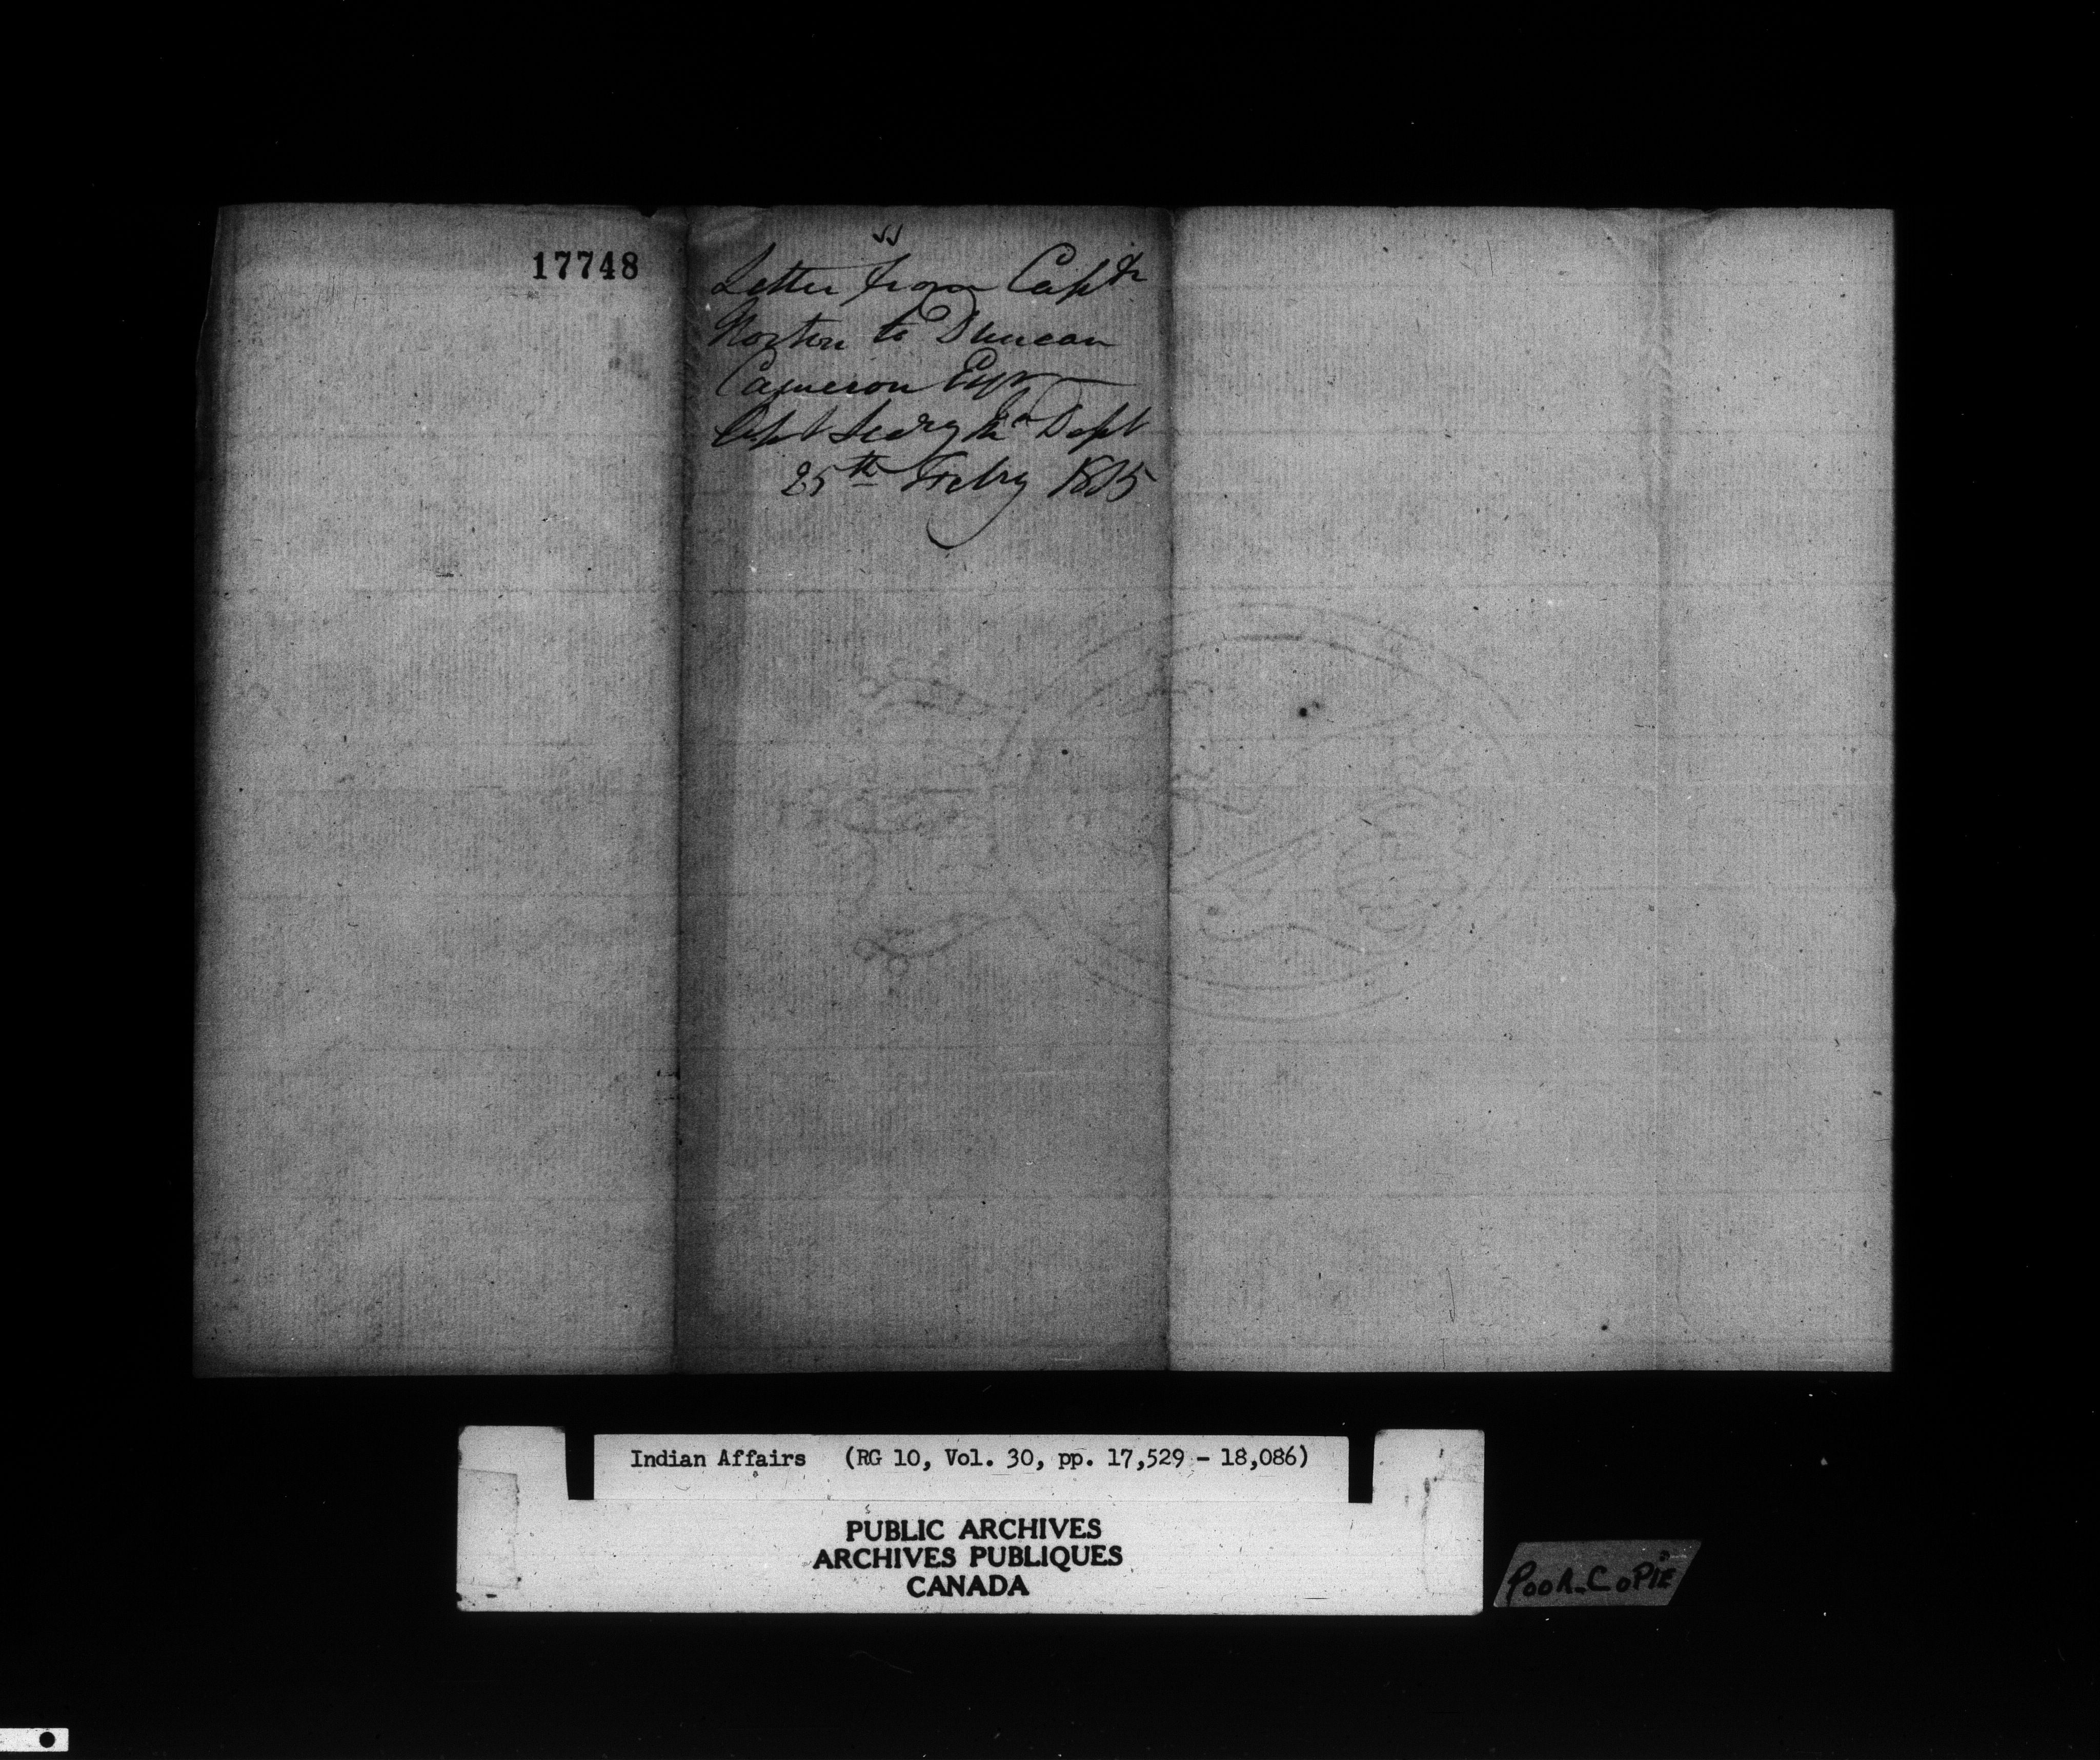 17748
Letter from Captn
Norton to Duncan
Cameron Esqr
Asst Secry Ind Dept
25th Feby 1815
Indian Affairs (RG 10, Vol. 30, pp. 17,529 - 18,086)
PUBLIC ARCHIVES
ARCHIVES PUBLIQUES
CANADA
POOR COPIE